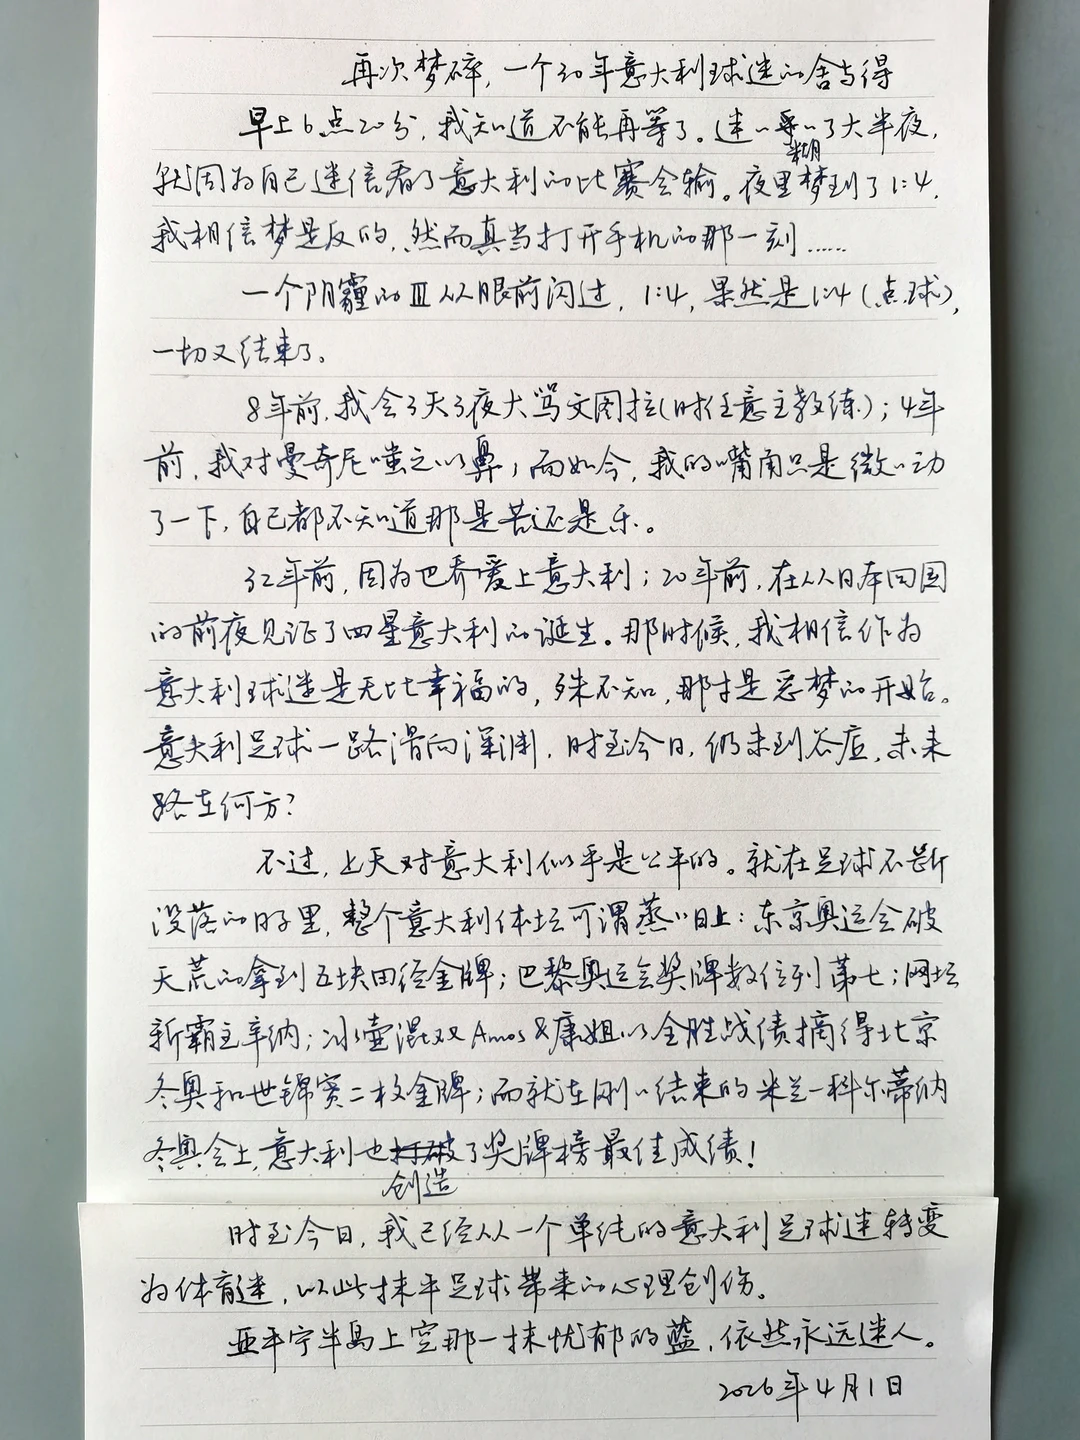 再次梦碎，一个30年意大利球迷的舍与得
早上6点20分，我知道不能再等了。迷迷糊糊了大半夜，
就因为自己迷信看了意大利的比赛会输。夜里梦到了1:4，
我相信梦是反的，然而真当打开手机的那一刻……
一个阴霾的III从眼前闪过，1:4，果然是1:4（点球），
一切又结束了。
8年前，我会3天3夜大骂文图拉（时任意主教练）；4年
前，我对曼奇尼嗤之以鼻；而如今，我的嘴角只是微微动
了一下，自己都不知道那是苦还是乐。
32年前，因为巴乔爱上意大利；20年前，在从日本回国
的前夜见证了四星意大利的诞生。那时候，我相信作为
意大利球迷是无比幸福的，殊不知，那才是恶梦的开始。
意大利足球一路滑向深渊，时至今日，仍未到谷底，未来
路在何方？
不过，上天对意大利似乎是公平的。就在足球不断
没落的日子里，整个意大利体坛可谓蒸蒸日上：东京奥运会破
天荒的拿到五块田径金牌；巴黎奥运会奖牌数位列第七；网坛
新霸主辛纳；冰壶混双Amos&康姐以全胜战绩摘得北京
冬奥和世锦赛二枚金牌；而就在刚刚结束的米兰-科尔蒂纳
冬奥会上，意大利也创造了奖牌榜最佳成绩！
时至今日，我已经从一个单纯的意大利足球迷转变
为体育迷，以此抹平足球带来的心理创伤。
亚平宁半岛上空那一抹忧郁的蓝，依然永远迷人。
2026年4月1日